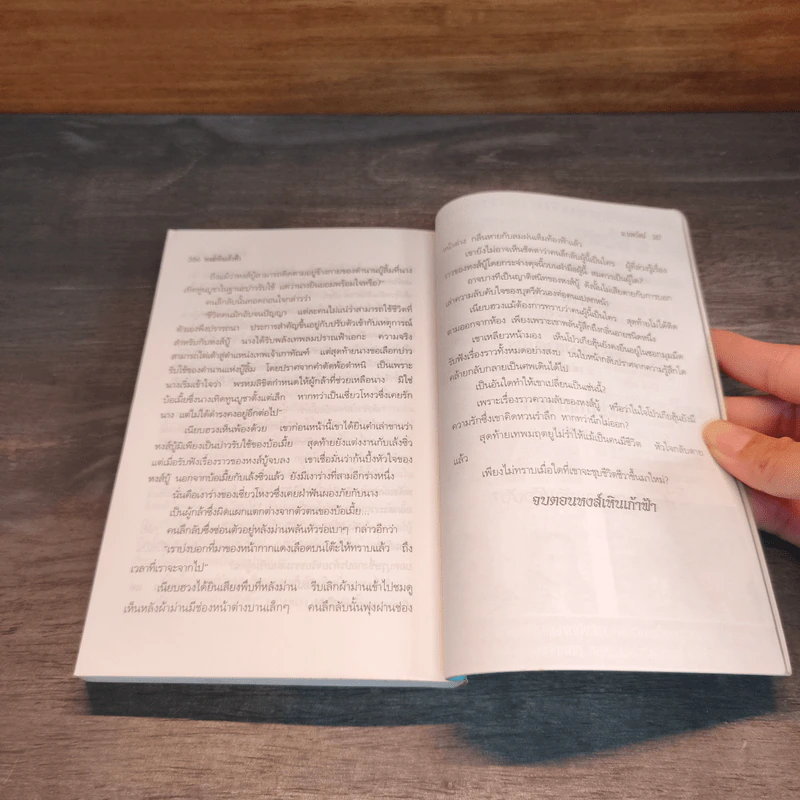 386 หงส์เหินเก้าฟ้า
ถึงแม้ว่าหงส์บู๊สามารถติดตามอยู่ข้างกายของตำนานผู้สิ้นที่นาง
เทิดทูนบูชาในฐานะบ่าวรับใช้ แต่ว่านางเป็นยอมพร้อมใจหรือ?"
คนลึกลับนั้นทอดถอนใจกล่าวว่า
"ชีวิตคนลึกลับจนปัญญา แต่ละคนไม่แน่ว่าสามารถใช้ชีวิตที่
ตัวเองพึงปรารถนา ประการสำคัญขึ้นอยู่กับปรับตัวเข้ากับเหตุการณ์
สำหรับกับหงส์บู๊ นางได้รับพลังเทพลมปราณฟ้าเอกะ ความจริง
สามารถไต่เต้าสู่ตำแหน่งเทพเจ้าภาทัณฑ์ แต่สุดท้ายนางขอเลือกบ่าว
รับใช้ของตำนานแห่งบู๊ลิ้ม โดยปราศจากคำตัดพ้อตำหนิ เป็นเพราะ
นางเริ่มเข้าใจว่า พรหมลิขิตกำหนดให้ผู้กล้าที่ช่วยเหลือนาง มิใช่
บ้อเมี้ยซึ่งนางเทิดทูนบูชาตั้งแต่เล็ก หากทว่าเป็นเซี่ยวโหงวซึ่งเคยรัก
นาง แต่ไม่ได้ดำรงคงอยู่อีกต่อไป"
เนียบฮวงเห็นพ้องด้วย เขาก่อนหน้านี้เขาได้ยินคำเล่าขานว่า
หงส์บู๊มิเพียงเป็นบ่าวรับใช้ของบ้อเมี้ย สุดท้ายยังแต่งงานกับเล้งชิ่ว
แต่เมื่อรับฟังเรื่องราวของหงส์บู๊จบลง เขาเชื่อมั่นว่าก้นบึ้งหัวใจของ
หงส์บู๊ นอกจากบ้อเมี้ยกับเล้งชิ่วแล้ว ยังมีเงาร่างที่สามอีกร่างหนึ่ง
นั่นคือเงาร่างของเซี่ยวโหงวซึ่งเคยฝ่าฟันผองภัยกับนาง
เป็นผู้กล้าซึ่งมีดแผกแตกต่างจากตัวตนของบ้อเมี้ย...
คนลึกลับซึ่งซ่อนตัวอยู่หลังม่านพลันหัวร่อเบาๆ กล่าวอีกว่า
"เราบ่งบอกที่มาของหน้ากากแดงเลือดบนโต๊ะให้ทราบแล้ว ถึง
เวลาที่เราจะจากไป"
เนียบฮวงได้ยินเสียงพึบที่หลังม่าน รีบเลิกผ้าม่านเข้าไปชมดู
เห็นหลังผ้าม่านมีช่องหน้าต่างบานเล็กๆ คนลึกลับนั้นพุ่งผ่านช่อง
น.นพรัตน์ 387
หน้าต่าง กลืนหายกับลมฝนเต็มท้องฟ้าแล้ว
เขายังไม่อาจเห็นชัดตาว่าคนลึกลับผู้นี้เป็นใคร ผู้ที่ล่วงรู้เรื่อง
ราวของหงส์บู๊โดยกระจ่างดุจนิ้วบนฝ่ามือผู้นี้ สมควรเป็นผู้ใด?
อาจบางทีเป็นญาติสนิทของหงส์บู๊ ดังนั้นไม่เสียดายกับการบอก
เล่าความลับดับใจของบุตรีตัวเองต่อคนแปลกหน้า
เนียบฮวงแม้ต้องการทราบว่าคนผู้นี้เป็นใคร สุดท้ายไม่ได้ติด
ตามออกจากห้อง เพียงเพราะเขาพลันรู้สึกถึงกลิ่นอายชนิดหนึ่ง
เขาเหลียวหน้ามอง เห็นโปวเกียฮุ้นยังคงยืนอยู่ในซอกมุมมืด
รับฟังเรื่องราวทั้งหมดอย่างสงบ บนใบหน้ากลับปราศจากความรู้สึกใด
คล้ายกับกลายเป็นศพเดินได้ไป
เป็นอันใดทำให้เขาเปลี่ยนเป็นเช่นนี้?
เพราะเรื่องราวความลับของหงส์บู๊ หรือว่าในใจโปวเกียฮุ้นยังมี
ความรักซึ่งเขาคิดหวนรำลึก หากทว่านึกไม่ออก?
สุดท้ายเทพมฤตยูไม่ร่ำไห้แม้เป็นคนมีชีวิต หัวใจกลับตาย
แล้ว
เพียงไม่ทราบเมื่อใดที่เขาจะชุบชีวิตชีวาขึ้นมาใหม่?
จบตอนหงส์เหินเก้าฟ้า